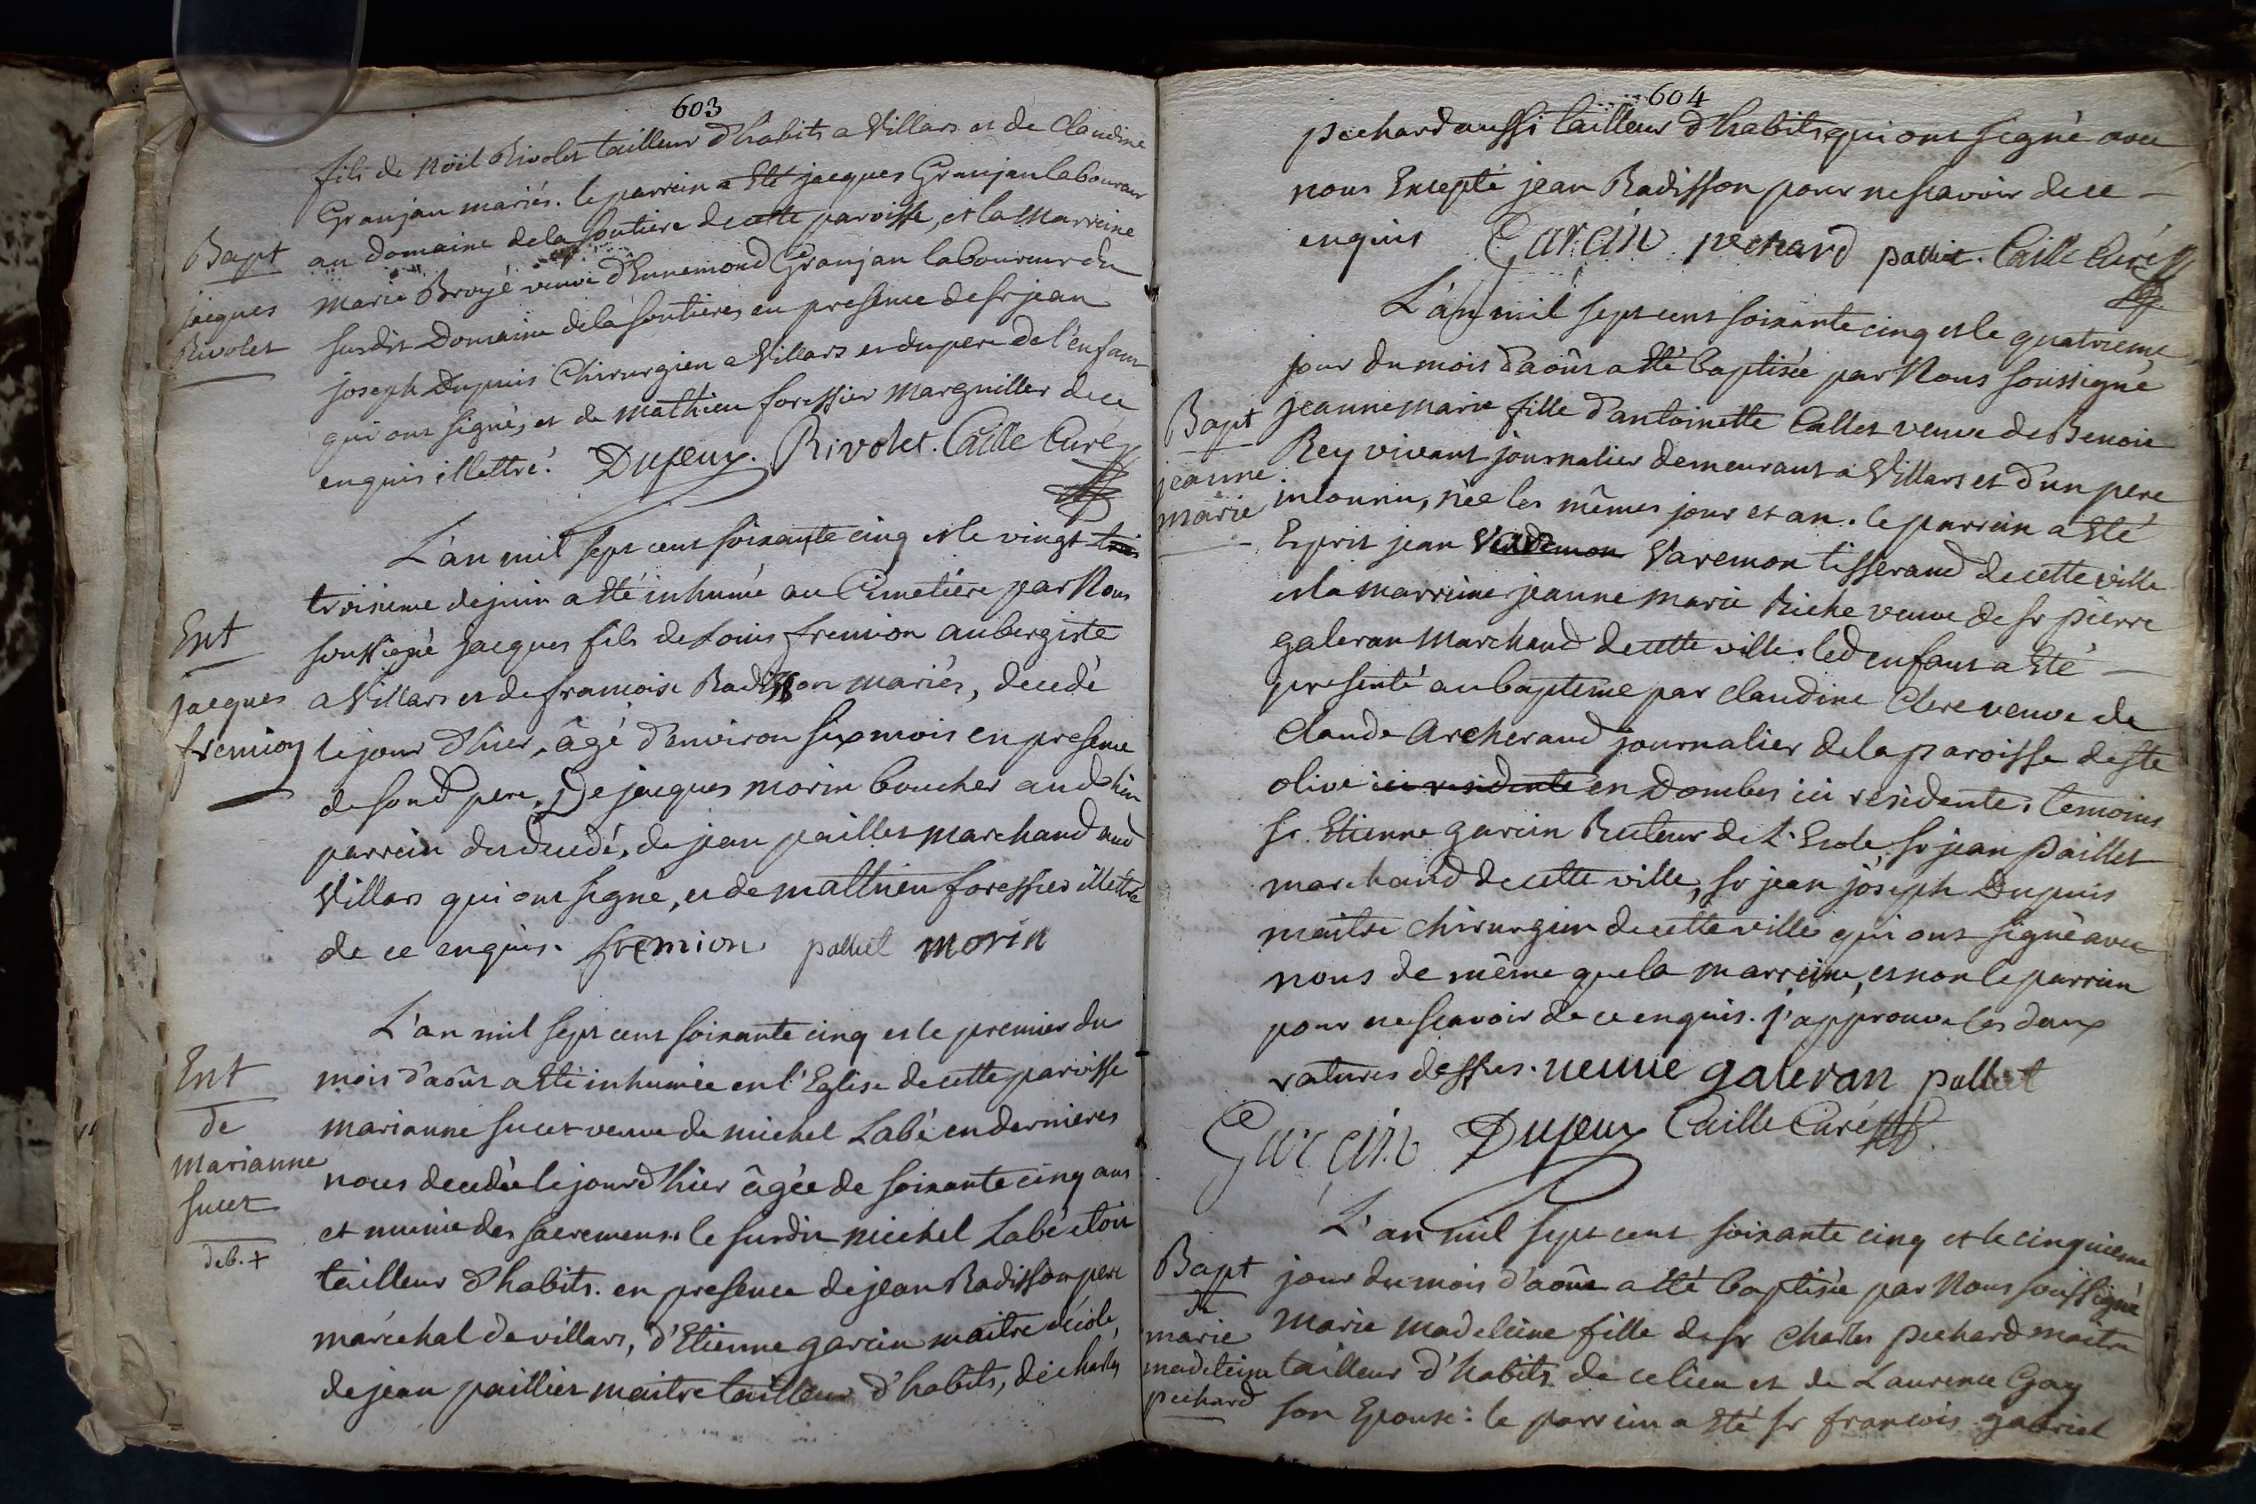 603
fils de Nöil Rivolet tailleur d'habits a Villars et de Claudine
Granjan mariés. le parrein a Eté jacques Granjan laboureur
au domaine de la Soutiere de cette paroisse, et la Marreine
marie Broyé veuve d'Ennemond Granjan laboureur du
susdit Domaine de la Soutiere, en presence de sr jean
joseph Dupuis Chirurgien a Villars et du pere de l'enfant
qui ont signé, et de mathieu foressier Marguiller de ce
enquis illettré. Dupuy. Rivolet. Caille Curé
Bapt
jacques
Rivolet
L'an mil sept cent soixante cinq et le vingt trois
troisieme de juin a eté inhumé au Cimetière par Nous
soussigné jacques fils de Louis fremion aubergiste
a Villars et de francoise Radisson mariés, decedé
le jour d'hier, âgé d'environ six mois en presence
de sond pere, De jacques morin boucher aud lieu
parrein dud decedé, de jean paillet marchand aud
Villars qui ont signé, et de mathieu foressier illettré
de ce enquis. fremion palliet morin
Ent
jacques
fremion
L'an mil sept cent soixante cinq et le premier du
mois d'août a Eté inhumée en l'Eglise de cette paroisse
marianne sucet veuve de michel Labé en dernieres
noces decedée le jour d'hier âgée de soixante cinq ans
et munie des sacremens. le susdit michel Labé etoit
tailleur d'habits. en presence de jean Radisson pere
maréchal de villars, d'Etienne garcin maitre d'ecole,
de jean paillier maitre tailleur d'habits, de charles
Ent
de
marianne
sucet
deb. +
604
pechard aussi tailleur d'habits qui ont signé avec
nous Excepté jean Radisson pour ne scavoir de ce
enquis Garcin pechard palliet. Caille Curé
L'an mil sept cent soixante cinq et le quatrieme
jour du mois d'août a eté baptisée par Nous soussigné
jeanne marie fille d'antoinette Callet veuve de Benoit
Rey vivant journalier demeurant a Villars et d'un pere
inconnu, née les mêmes jour et an. le parrein a Eté
Esprit jean Vademon Varemon tisserand de cette ville
et la marreine jeanne marie Riche veuve de sr pierre
galeran Marchand de cette ville. led enfant a Eté
presenté au bapteme par claudine Clere veuve de
Claude Archerand journalier de la paroisse de ste
olive ici residente en Dombes ici residente. temoins
sr Etienne garcin Recteur de l'Ecole sr jean Paillet
marchand de cette ville, sr jean joseph Dupuis
maitre chirurgien de cette ville qui ont signé avec
nous de même que la marreine, et non le parrein
pour ne scavoir de ce enquis. j'approuve les deux
ratures desstes. veuve galeran palliet
Garcin Dupuy Caille Curé
Bapt
jeanne
marie
L'an mil sept cent soixante cinq et le cinquieme
jour du mois d'août a eté baptisée par Nous soussigné
Marie Madeleine fille de sr Charles pechard maitre
tailleur d'habits de ce lieu et de Laurence Gay
son Epouse: le parrein a Eté sr francois gabriel
Bapt
de
marie
madeleine
pechard